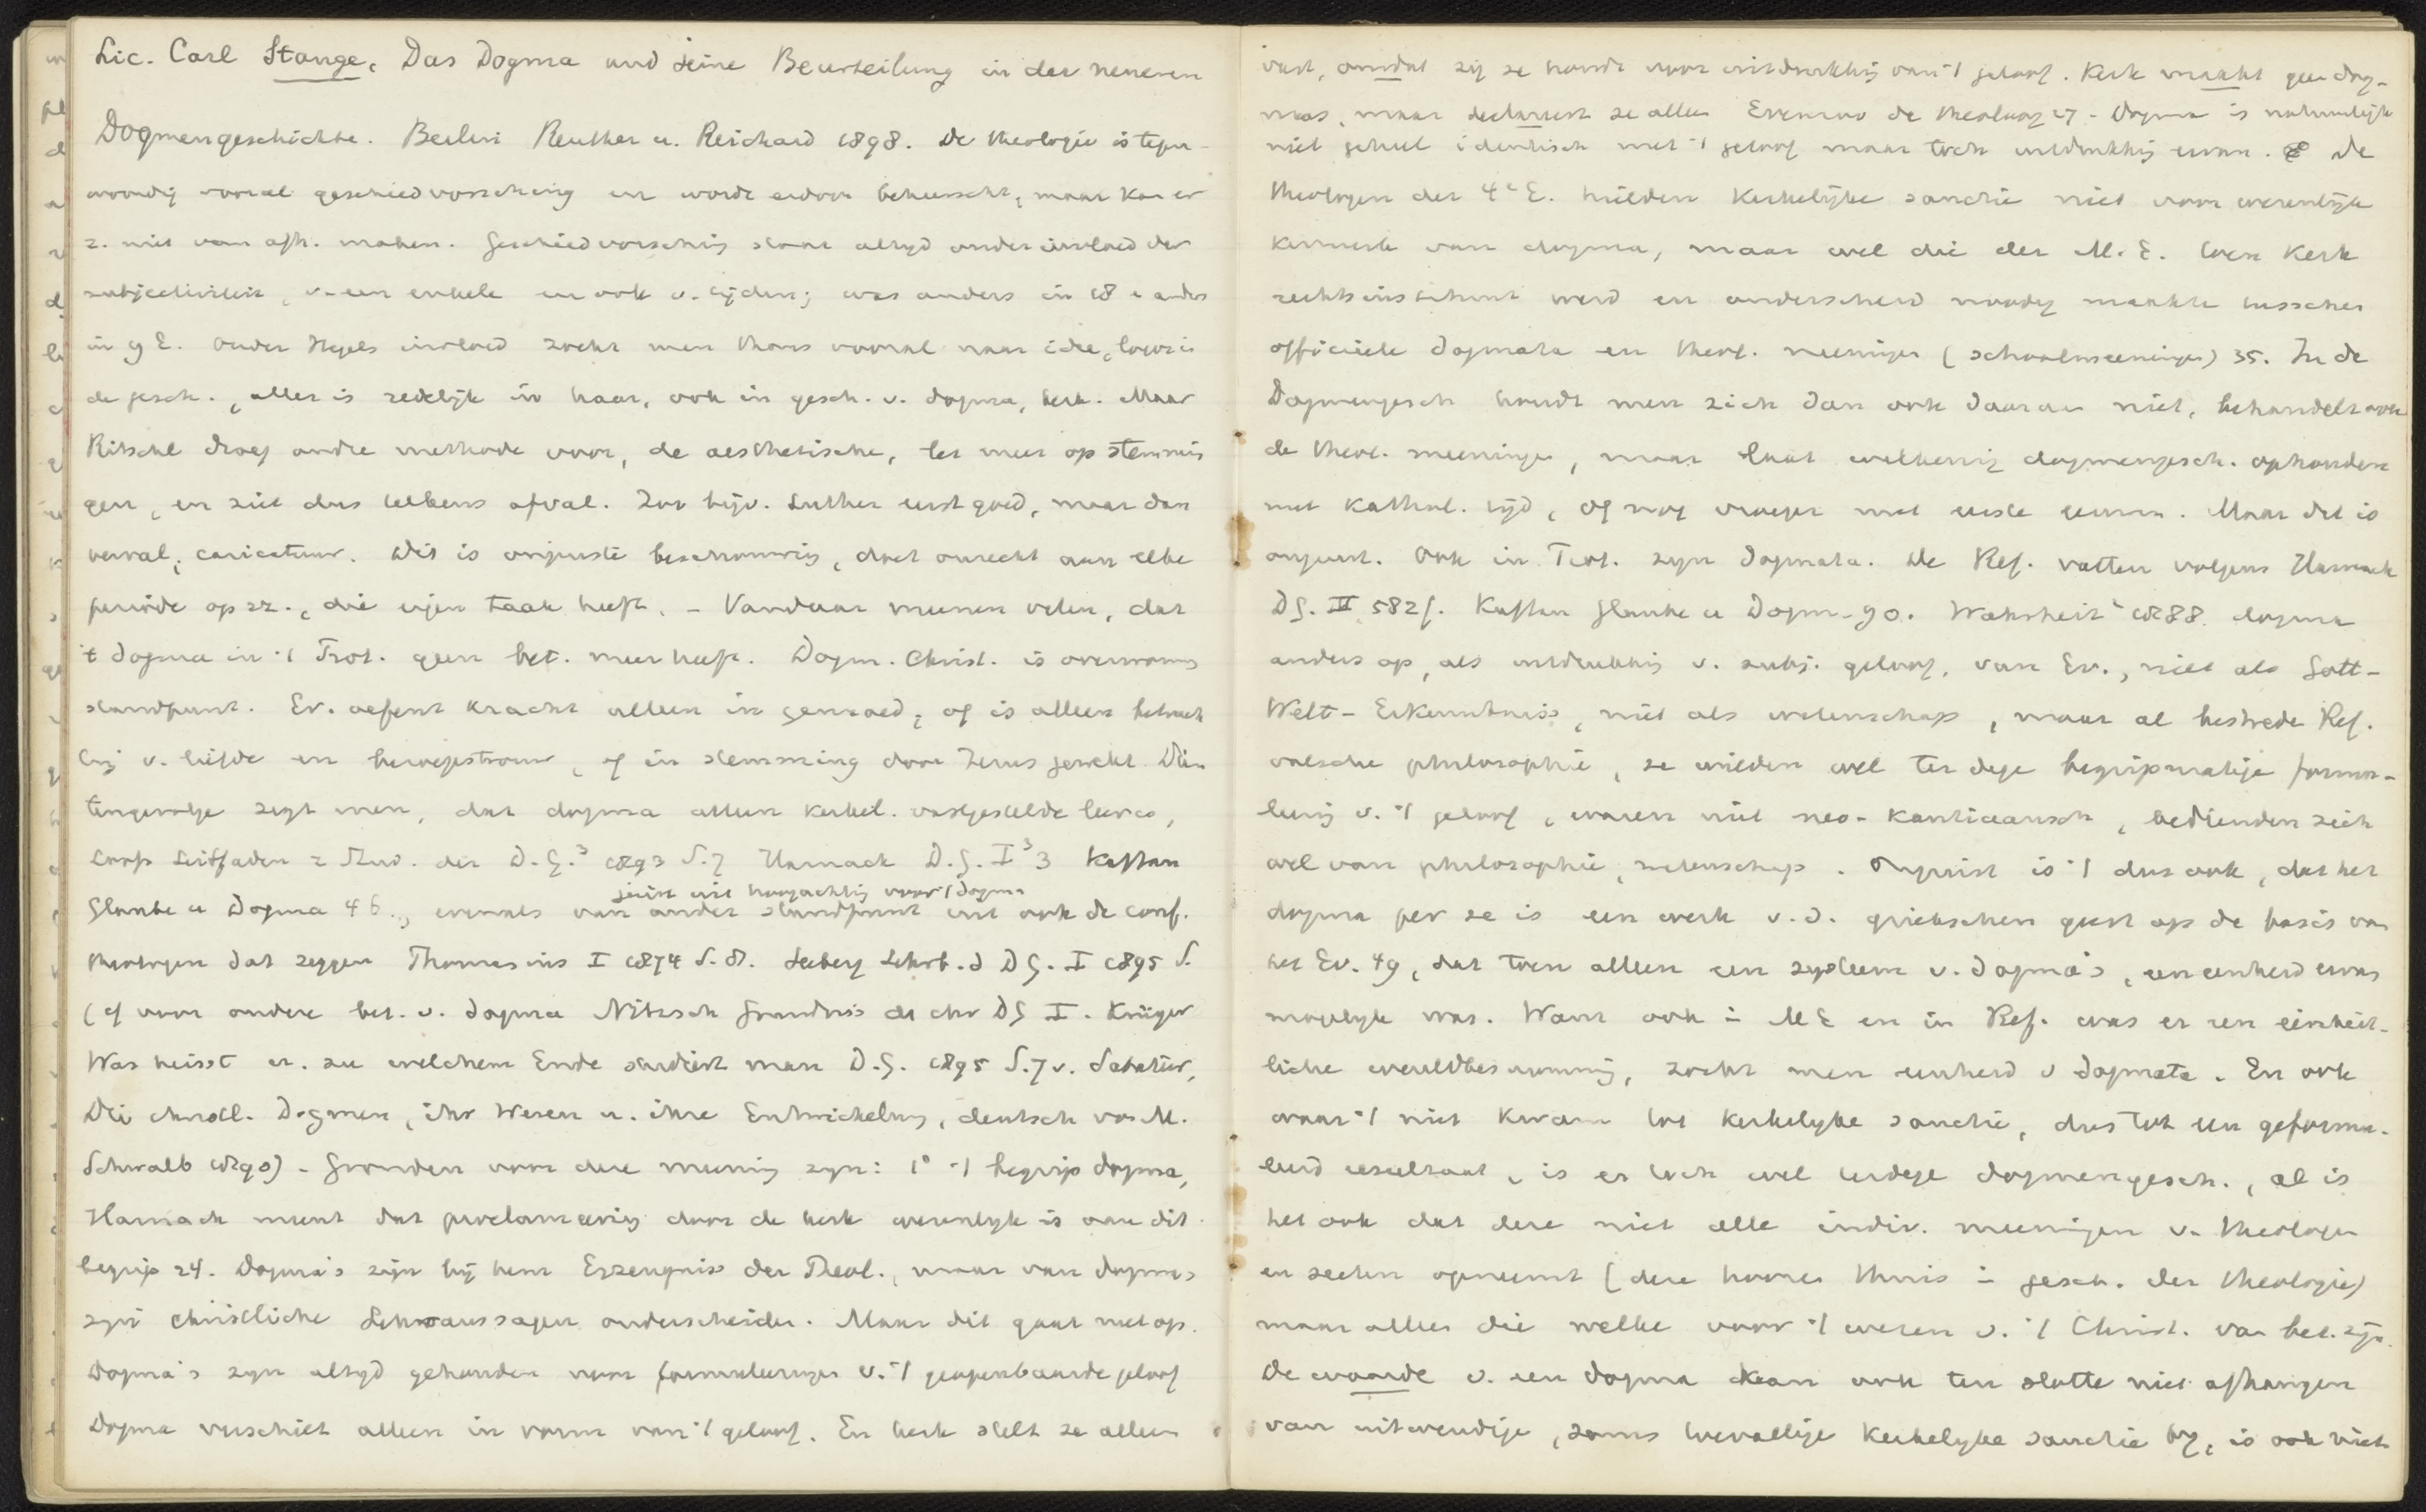 Lic. Carl Stange, Das Dogma und seine Beurteilung in der neueren
Dogmengeschichte. Berlin Reuther u. Reichard 1898. De theologie is tegen-
woordig vooral geschiedvorsching en wordt erdoor beheerscht, maar kan er
z. niet van afh. maken. Geschiedvorsching staat altyd onder invloed der
subjectiviteit, v. een enkele en ook v. tijden; was anders in 18 e anders
in 9 E. Onder Hegels invloed zoekt men thans vooral naar idee, logos in
de gesch., alles is redelijk in haar, ook in gesch. v. dogma, kerk. Maar
Ritschl droeg andre methode voor, de aesthetische, let meer op stemmin
gen, en ziet dus telkens afval. Zoo bijv. Luther eerst goed, maar dan
verval, caricatuur. Dit is onjuiste beschouwing, doet onrecht aan elke
periode op zz., die eigen taak heeft. - Vandaar meenen velen, dat
't dogma in 't Prot. geen bet. meer heeft. Dogm. Christ. is overwonnen
standpunt. Ev. oefent kracht alleen in gemoed, of is alleen betrach
ting v. liefde en broederstrouw, of in stemming door Jezus gewekt. Dien
tengevolge zegt men, dat dogma alleen kerkel. vastgestelde leer is,
Loofs Leitfaden z Stud. der D.G.³ 1893 S.7 Harnack D.G. I³ 3 Kaftan
juist uit hoogachting voor 't dogma
Glaube u Dogma 46., evenals van ander standpunt uit ook de conf.
theologen dat zeggen Thomasius I 1874 S.8. Seeberg Lehrb. d DG. I 1895 S.
(cf voor andere bet. v. dogma Nitzsch Grundriss der chr DG I. Krüger
Was heisst u. zu welchem Ende studirt man D.G. 1895 S.7 v. Sabatier,
Die christl. Dogmen, ihr Wesen u. ihre Entwickelung, deutsch von M.
Schwalb 1890) - Gronden voor deze meening zyn: 1° 't begrip dogma,
Harnack meent dat proclameering door de kerk wezenlyk is aan dit
begrip 24. Dogma's zijn bij hem Erzeugniss der Theol., maar van dogmas
zyn christliche Lehraussagen onderscheiden. Maar dit gaat niet op.
Dogma's zyn altyd gehouden voor formuleringen v. 't geopenbaarde geloof
Dogma verschilt alleen in vorm van 't geloof. En kerk stelt ze alleen
vast, omdat zij ze houdt voor uitdrukking van 't geloof. Kerk maakt geen dog-
mas, maar declareert ze alleen Evenzoo de theoloog 27 - Dogma is natuurlijk
niet geheel identisch met 't geloof maar toch uitdrukking ervan. De
theologen der 4e E. hielden kerkelijke sanctie niet voor wezenlijk
kenmerk van dogma, maar wel die der M.E. toen kerk
rechtsinstituut werd en onderscheid noodig maakte tusschen
officiëele dogmata en theol. meeningen (schoolmeeningen) 35. In de
Dogmengesch houdt men zich dan ook daaraan niet, behandelt ook
de theol. meeningen, maar laat willekeurig dogmengesch. ophouden
met Kathol. tijd, of nog vroeger met eerste eeuwen. Maar dat is
onjuist. Ook in Prot. zyn dogmata. De Ref. vatten volgens Harnack
DG. III 582f. Kaftan Glaube u Dogm- 90. Wahrheit 1888. dogma
anders op, als uitdrukking v. subj. geloof, van Ev., niet als Gott-
Welt-Erkenntniss, niet als wetenschap, maar al bestreden Ref.
valsche philosophie, ze wilden wel ter dege begripmatige formu-
leering v. 't geloof, waren niet neo-Kantiaansch, bedienden zich
wel van philosophie, wetenschap. Onjuist is 't dus ook, dat het
dogma per se is een werk v.d. griekschen geest op de basis van
het Ev. 49, dat toen alleen een systeem v. dogma's, een eenheid ervan
mogelyk was. Want ook in ME en in Ref. was er een einheit-
liche wereldbeschouwing, zocht men eenheid v dogmata. En ook
waar 't niet kwam tot kerkelyke sanctie, dus tot een geformu-
leerd resultaat, is er toch wel terdege dogmengesch., al is
het ook dat deze niet alle indiv. meeningen v. theologen
en secten opneemt (deze hooren thuis in gesch. der theologie)
maar alleen die welke voor 't wezen v. 't Christ. van bet. zijn.
De waarde v. een dogma kan ook ten slotte niet afhangen
van uitwendige, soms toevallige kerkelyke sanctie by, is ook niet